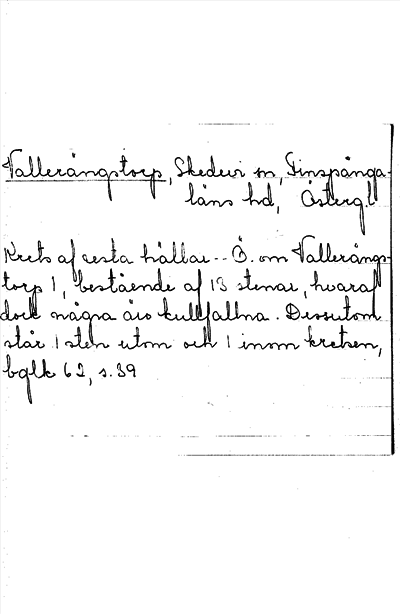 Vallerängstorp, Skedevi sn, Finspånga-
läns hd, Österg.
Krets af resta hällar -- Ö. om Vallerängs-
torp 1, bestående af 13 stenar, hvaraf
dock några äro kullfallna. Dessutom
står 1 sten utom och 1 inom kretsen,
bglk 62, s. 39